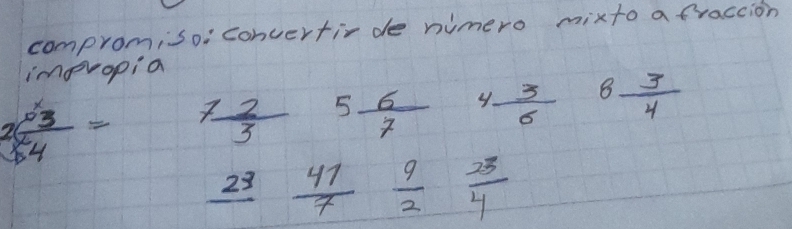 compromiso: convertir de número mixto a fracción
impropia
2 3/4 = 7 2/3 5 6/7 4 3/6 8 3/4
23 41/7 9/2 23/4